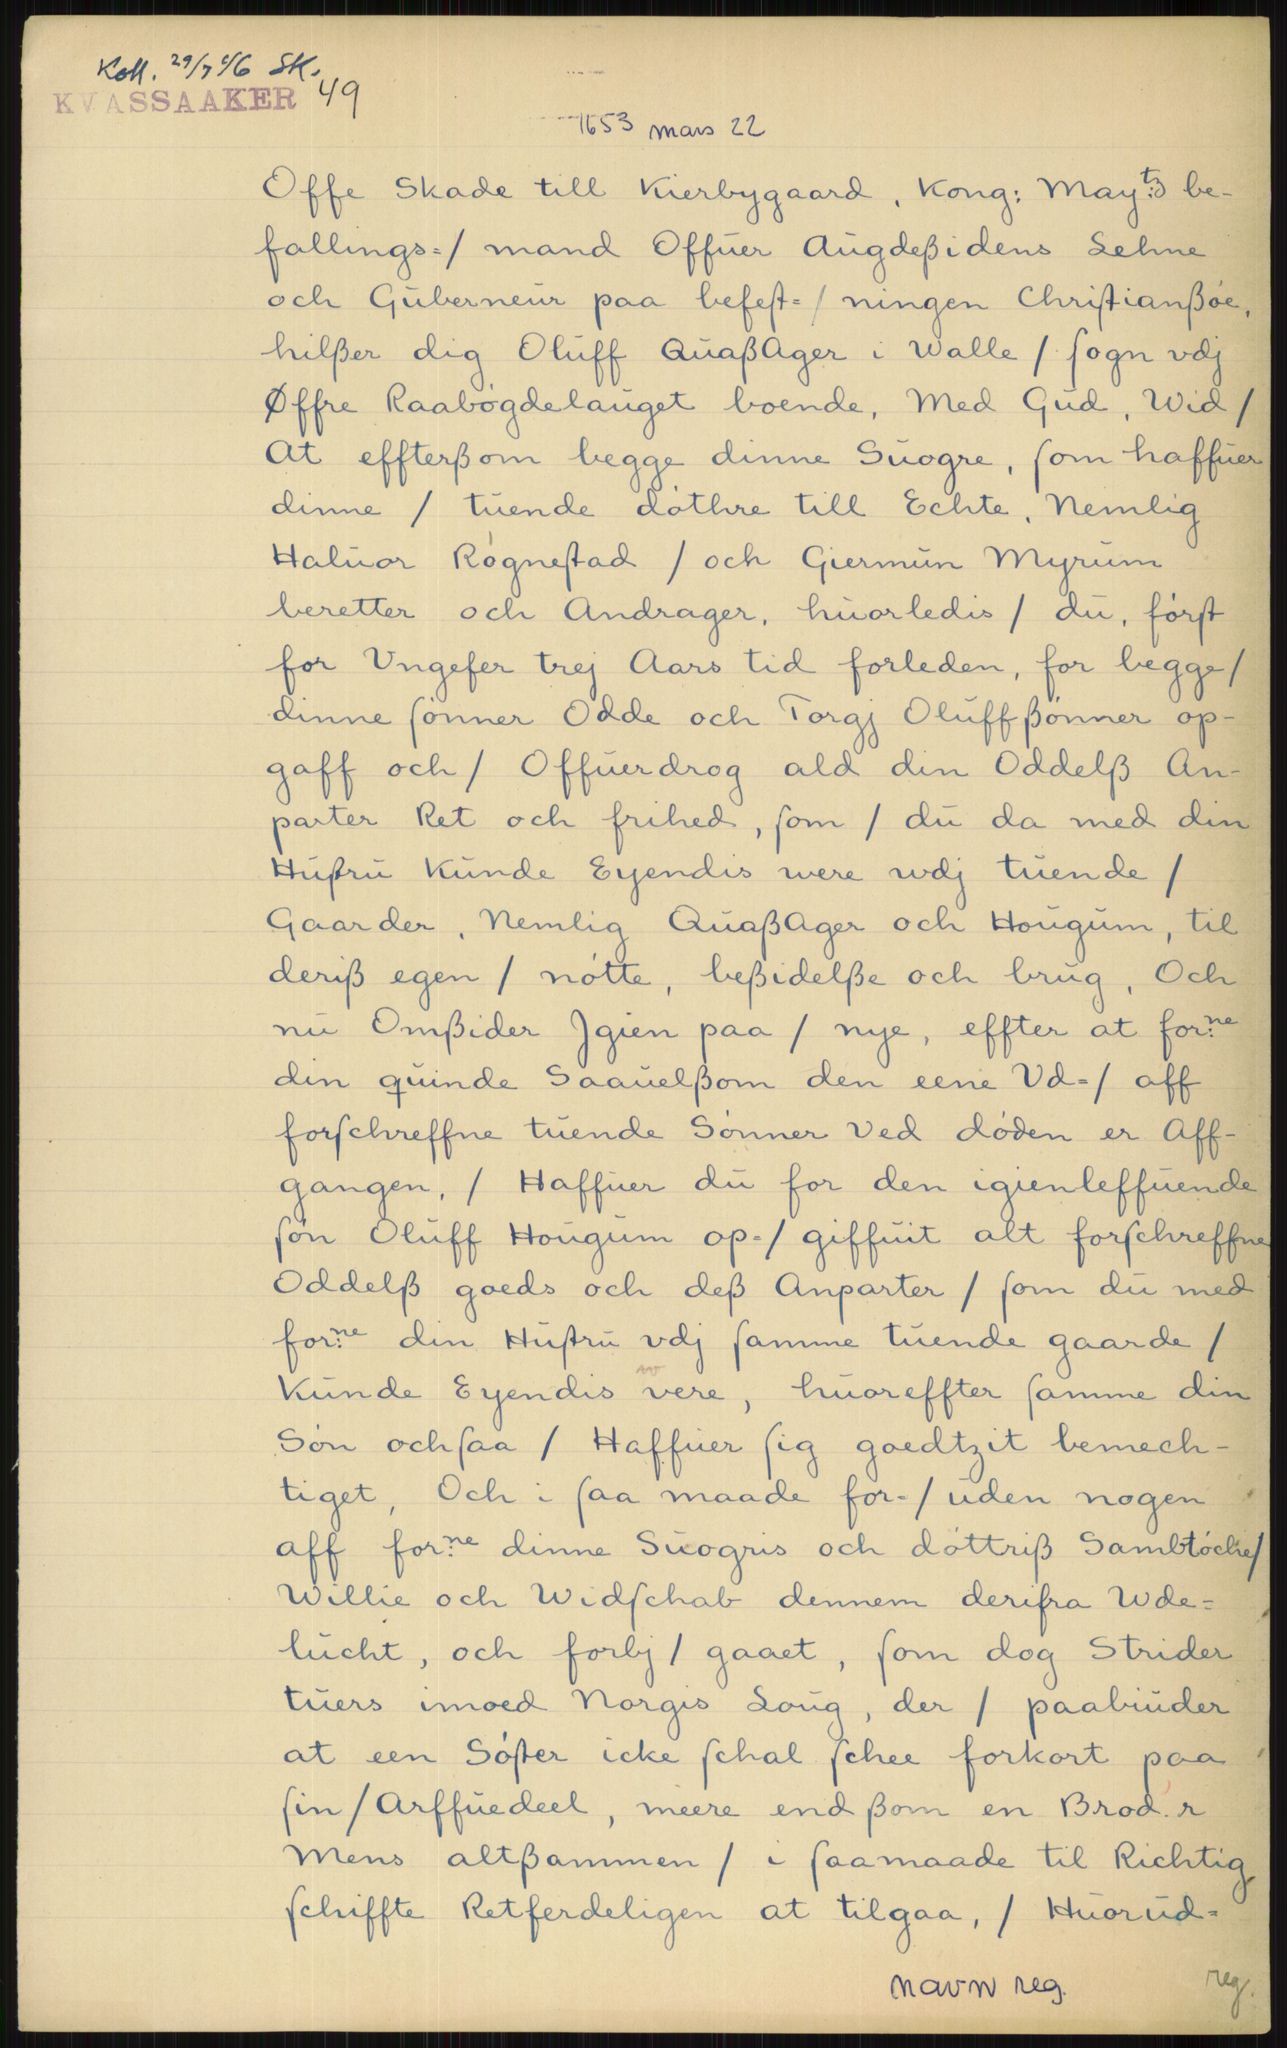 Koll. 29/7 46 SK.
KVASSAAKER 49
1653 mars 22
Offe Skade till Kierbygaard, Kong: May:tz be-
fallings=/ mand Offuer Augdeßidens Lehne
och Guberneur paa befest=/ ningen Christianßóe,
hilßer dig Oluff QuaßAger i Walle / sogn vdj
Øffre Raabógdelauget boende, Med Gud, Wid /
At effterßom begge dinne Suogre, som haffuer
dinne / tuende dóthre till Echte, Nemlig
Haluor Rógnestad / och Giermun Myrum
beretter och Andrager, huorledis / du, fórst
for Vngefer trej Aars tid forleden, for begge /
dinne sónner Odde och Torgj Oluffßónner op-
gaff och / Offuerdrog ald din Oddelß An-
parter Ret och frihed, som / du da med din
Hustru Kunde Eyendis were wdj tuende /
Gaarder, Nemlig QuaßAger och Hougum, til
deriß egen / nótte, beßidelße och brug, Och
nu Omßider Jgien paa / nye, effter at for:ne
din quinde Saauelßom den eene Vd=/ aff
forschreffne tuende Sónner Ved dóden er Aff-
gangen, / Haffuer du for den igienleffuende
són Oluff Hougum op=/ giffuit alt forschreffne
Oddelß goeds och deß Anparter / som du med
for:ne din Hustru vdj samme tuende gaarde /
Kunde Eyendis vere, huoreffter samme din
Són ochsaa / Haffuer sig goedtzit bemech-
tiget, Och i saa maade for=/ uden nogen
aff for:ne dinne Suogris och dóttriß Sambtóche /
Willie och Widschab dennem derifra Wde=
lucht, och forbj / gaaet, som dog Strider
tuers imoed Norgis Loug, der / paabiuder
at een Sóster icke schal schee forkort paa
sin / Arffuedeel, meere endßom en Brod.r
Mens altßammen / i saamaade til Richtig
schiffte Retferdeligen at tilgaa, / Huorud=
navn reg.
reg.